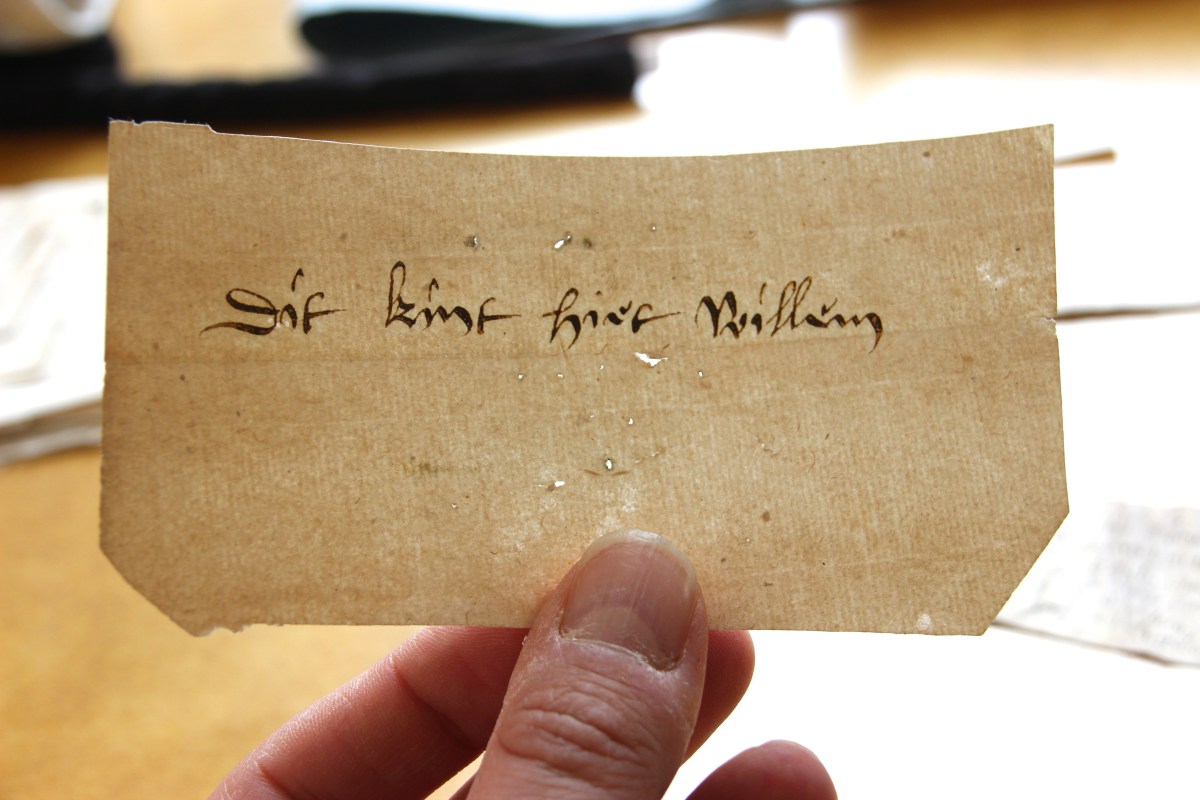 Dit kint hiet Willem